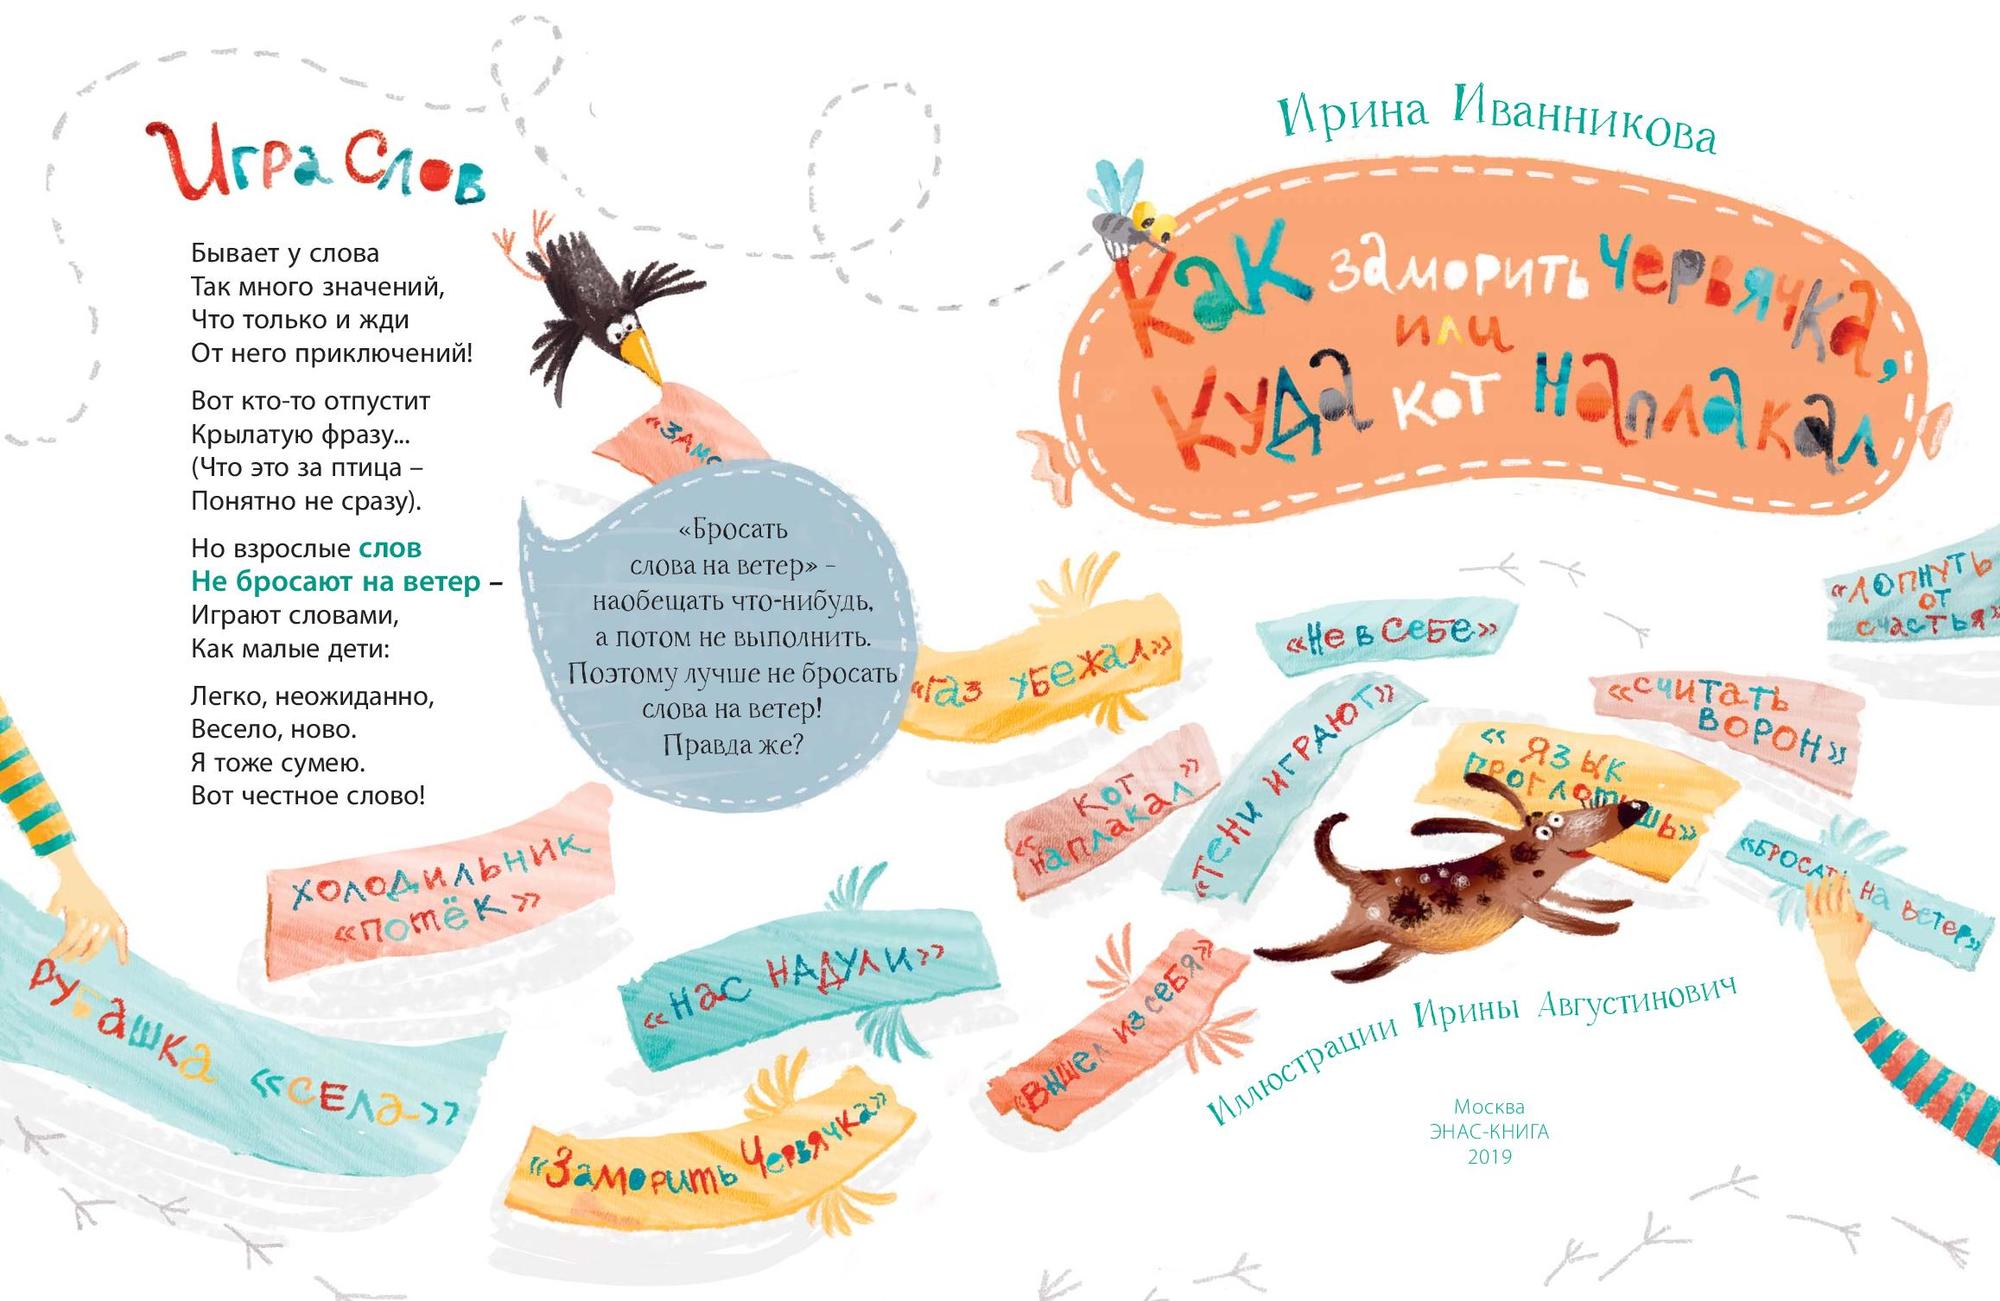 Игра Слов
Бывает у слова
Так много значений,
Что только и жди
От него приключений!
Вот кто-то отпустит
Крылатую фразу...
(Что это за птица –
Понятно не сразу).
Но взрослые слов
Не бросают на ветер –
Играют словами,
Как малые дети:
Легко, неожиданно,
Весело, ново.
Я тоже сумею.
Вот честное слово!
«Бросать
слова на ветер» –
наобещать что-нибудь,
а потом не выполнить.
Поэтому лучше не бросать
слова на ветер!
Правда же?
Рубашка «села»
холодильник
«потёк»
«нас надули»
«Заморить Червячка»
Ирина Иванникова
Как заморить червячка,
или
Куда кот наплакал
«газ убежал»
«Не в себе»
«лопнуть
от
счастья»
«считать
ворон»
«Тени играют»
«кот
наплакал»
«язык
проглотишь»
«Вышел из себя»
Иллюстрации Ирины Августинович
Москва
ЭНАС-КНИГА
2019